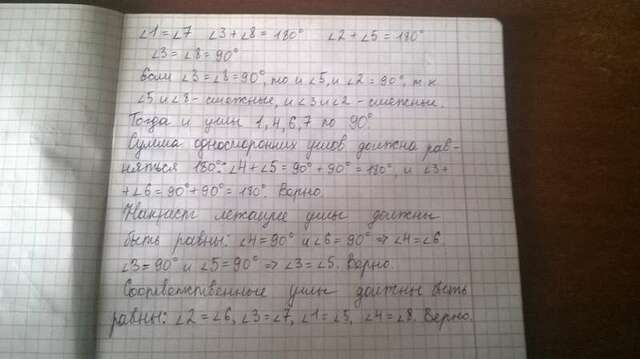 ∠1=∠7 ∠3+∠8=180° ∠2+∠5=180°
∠3=∠8=90°
Если ∠3=∠8=90°, то и ∠5, и ∠2=90°, т.к
∠5 и ∠8 - смежные, и ∠3 и ∠2 - смежные.
Тогда и углы 1, 4, 6, 7 по 90°.
Сумма односторонних углов должна рав-
няться 180°: ∠4+∠5=90°+90°=180°, и ∠3+
+∠6=90°+90°=180°. Верно.
Накрест лежащие углы должны
быть равны: ∠4=90° и ∠6=90° ⇒ ∠4=∠6.
∠3=90° и ∠5=90° ⇒ ∠3=∠5. Верно.
Соответственные углы должны быть
равны: ∠2=∠6, ∠3=∠7, ∠1=∠5, ∠4=∠8. Верно.